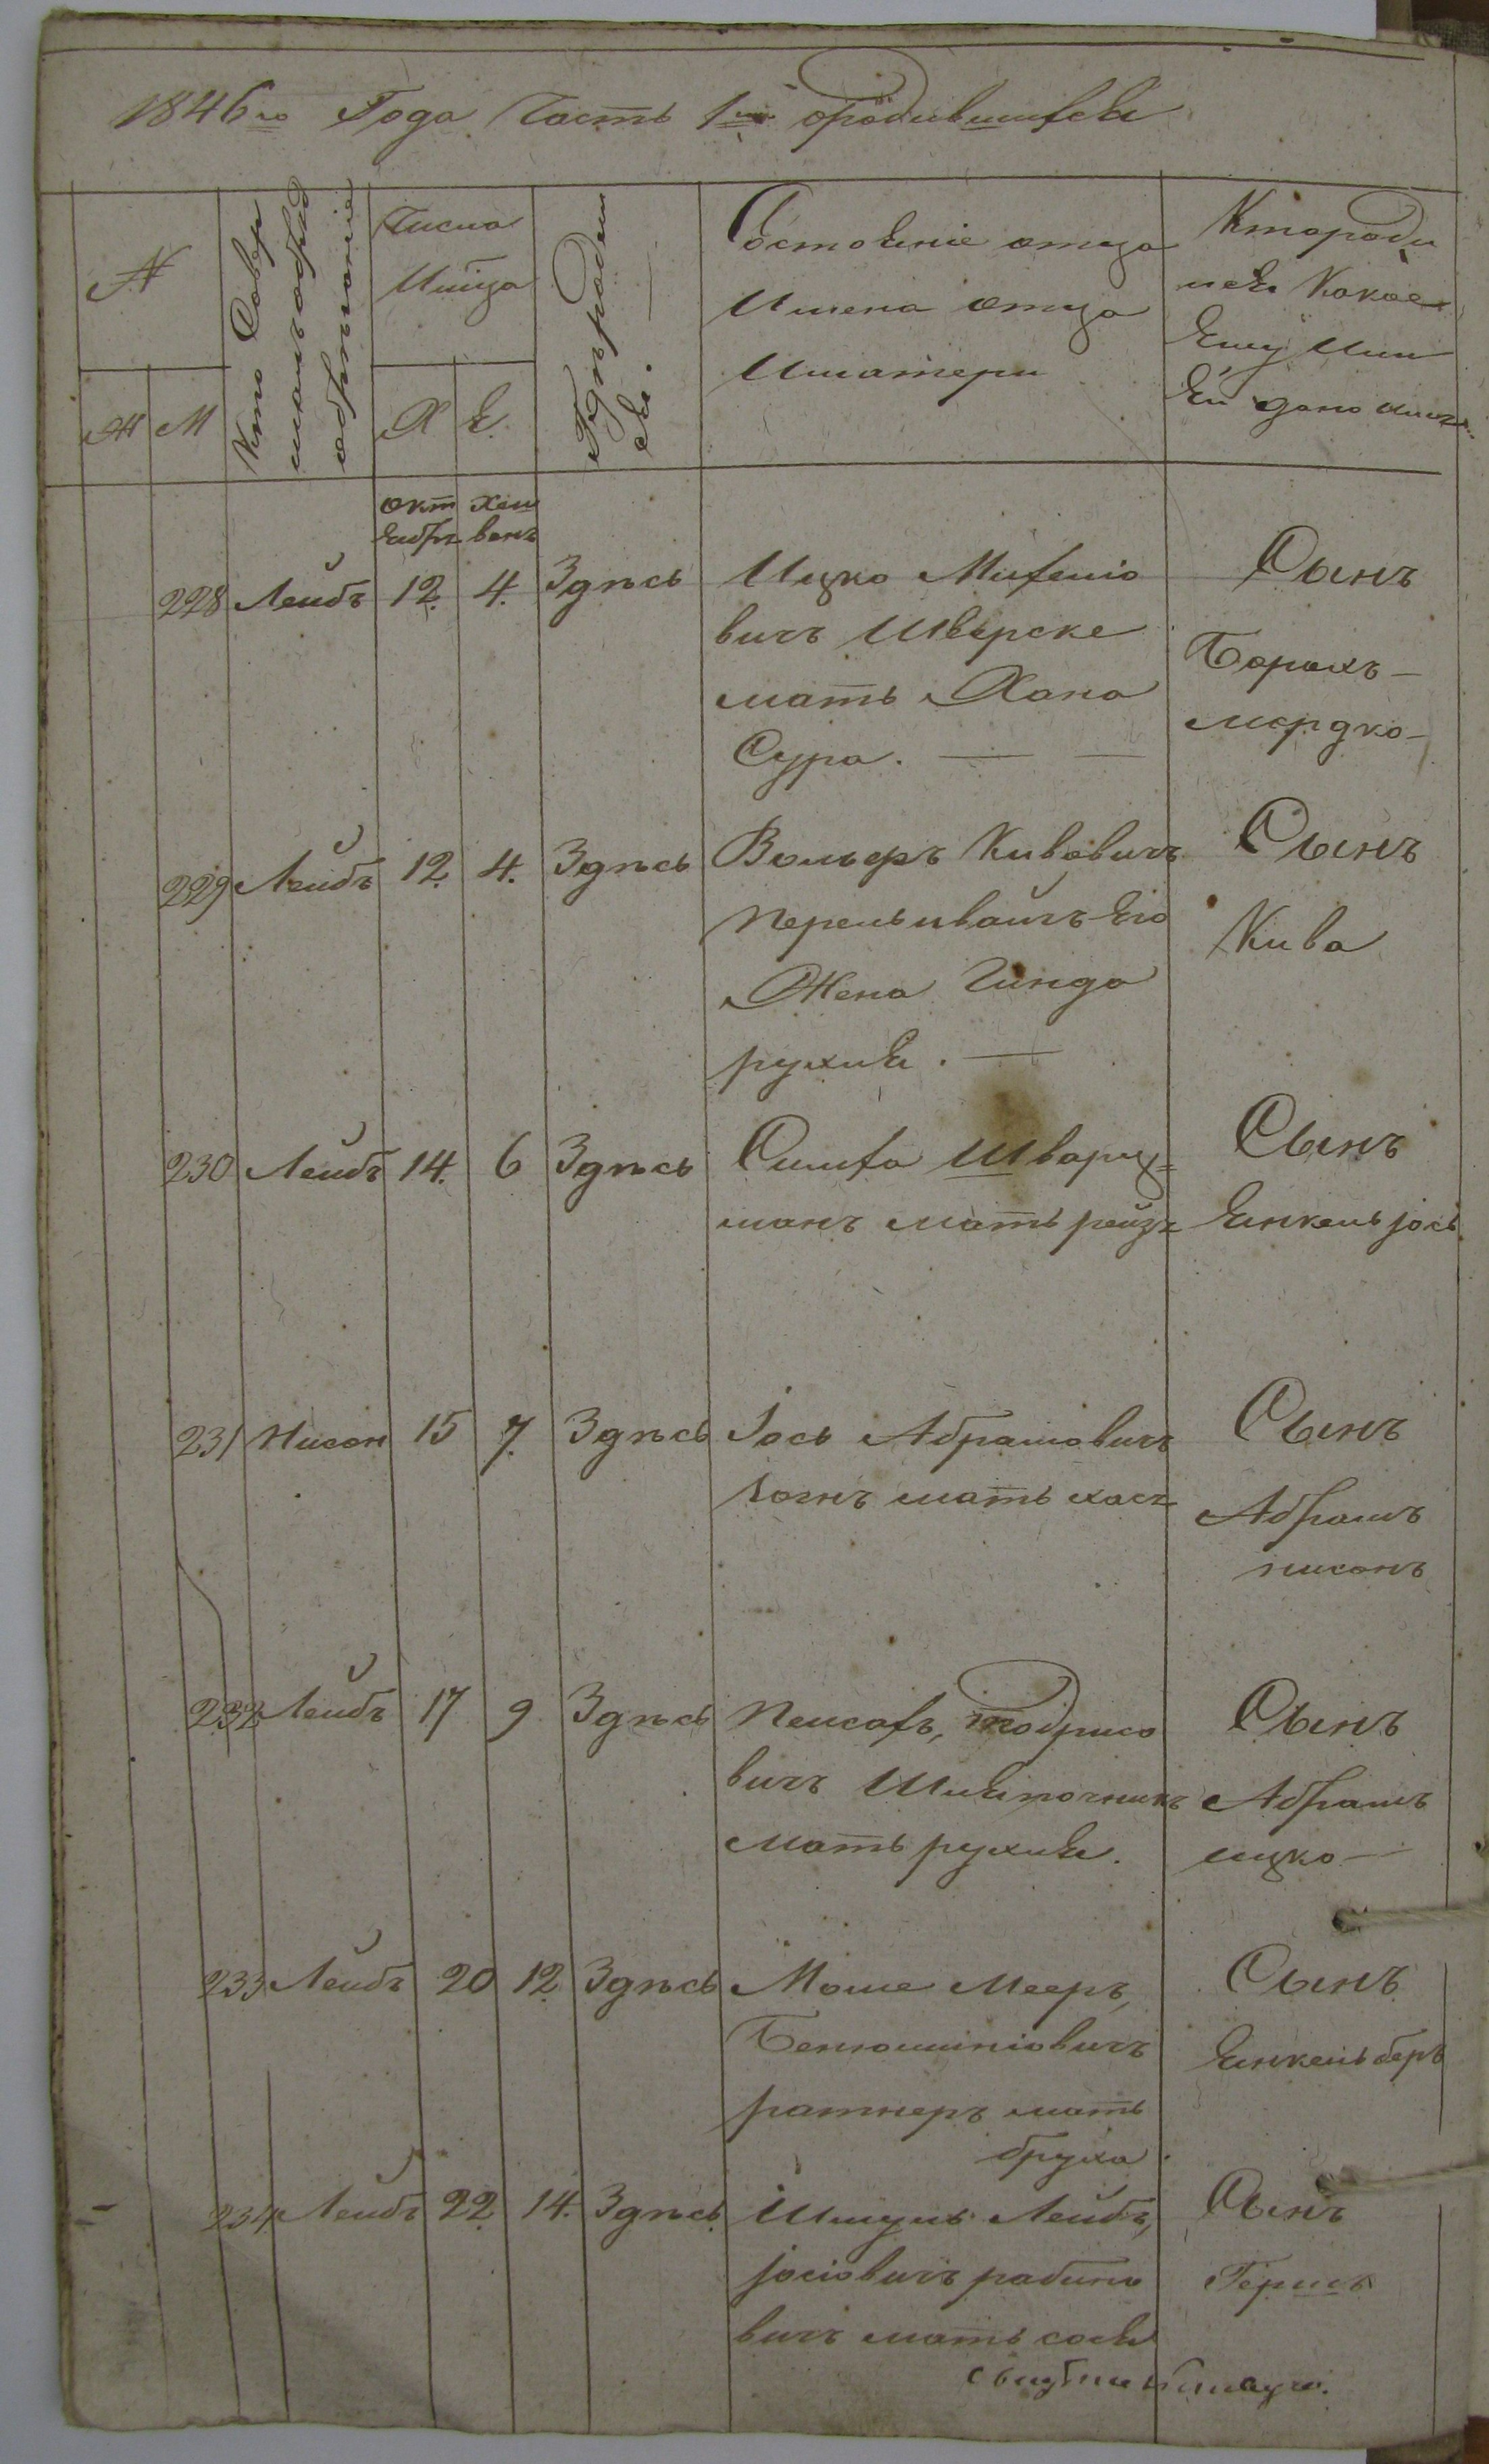 1846го Года Часть 1я ородившихся
№
Ж М
Кто Совер
шалъ обряд
обрѣзанія
Числа
Мѣца
Х Е.
Гдѣ родил
ся.
Состояніе отца
Имена отца
Иматери
Кто роди
лся Какое
Ему Или
Ей дано имя
Окт
ябрь
Хеш
венъ
228 Лейбъ 12. 4. Здѣсь Ицко
вичъ Шверске
мать Хана
Сура. — —
Сынъ
Борухъ —
мордко —
229 Лейбъ 12. 4. Здѣсь Вольфъ Кивовичъ
перельцвайгъ Его
Жена Гинда
рухля. —
Сынъ
Кива
230 Лейбъ 14. 6 Здѣсь Симха Шварц=
манъ мать рейзъ
Сынъ
Янкель јось
231 Нисон 15 7. Здѣсь Јось Абрамовичъ
когнъ мать хася
Сынъ
Абрамъ
нисонъ
232 Лейбъ 17 9 Здѣсь Пейсахъ, тодрисо
вичъ Шляпочникъ
мать рухля.
Сынъ
Абрамъ
ицко —
233 Лейбъ 20 12 Здѣсь Моше Мееръ,
Бенюминіовичъ
ратнеръ мать
бруха.
Сынъ
Янкель беръ
234 Лейбъ 22. 14. Здѣсь Шмуль Лейбъ,
јосіовичъ рабино
вичъ мать сося
Сынъ
Гершъ